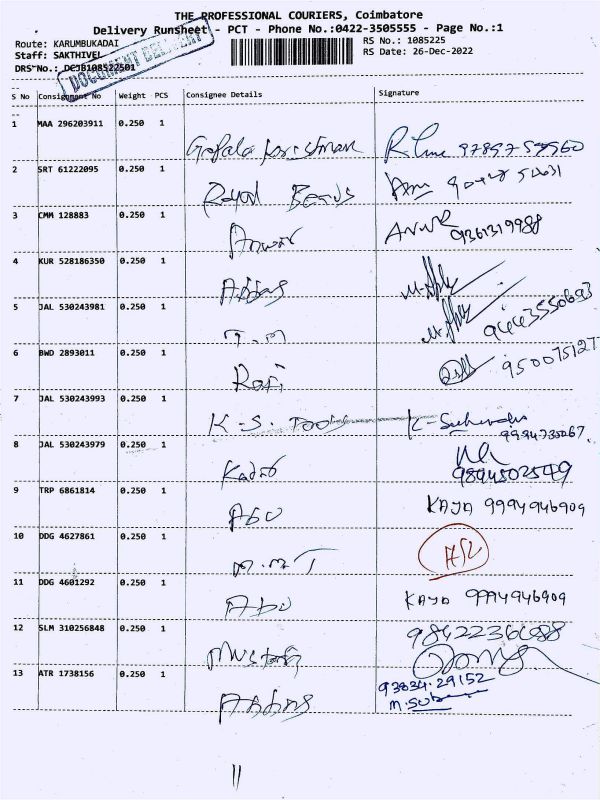 THE PROFESSIONAL COURIERS, Coimbatore
Delivery Runsheet - PCT - Phone No.:0422-3505555 - Page No.:1
Route: KARUMBUKADAI RS No.: 1085225
Staff: SAKTHIVEL RS Date: 26-Dec-2022
DRS No.: DCJB108522501
DOCUMENT DELIVERY
S No Consignment No Weight PCS Consignee Details Signature
1 MAA 296203911 0.250 1
Gopala Krishnan
2 SRT 61222095 0.250 1
Royal
3 CMM 128883 0.250 1
Anwar ANWR 9361319988
4 KUR 528186350 0.250 1
Abbas
5 JAL 530243981 0.250 1
T.M 9443550693
6 BWD 2893011 0.250 1
Rafi 9500751277
7 JAL 530243993 0.250 1
K-S. TOOLS 9994735067
8 JAL 530243979 0.250 1
Kadar 9894502549
9 TRP 6861814 0.250 1
ABU KAJA 9994946909
10 DDG 4627861 0.250 1
M.M.T
11 DDG 4601292 0.250 1
ABU KAJA 9994946909
12 SLM 310256848 0.250 1
Mustafa 9842236688
13 ATR 1738156 0.250 1
Abbas 93834.29152
11